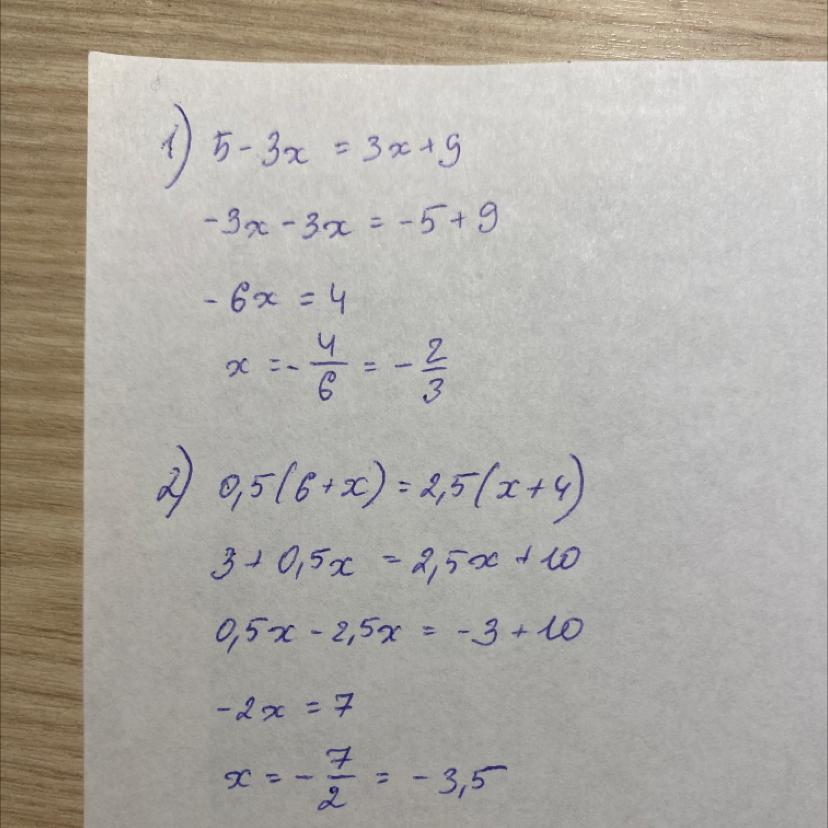 1) 5 - 3x = 3x + 9
-3x - 3x = -5 + 9
-6x = 4
x = -4/6 = -2/3
2) 0,5(6 + x) = 2,5(x + 4)
3 + 0,5x = 2,5x + 10
0,5x - 2,5x = -3 + 10
-2x = 7
x = -7/2 = -3,5